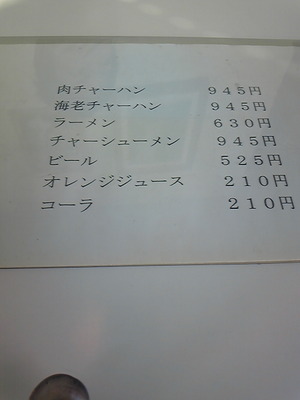 肉チャーハン ９４５円
海老チャーハン ９４５円
ラーメン ６３０円
チャーシューメン ９４５円
ビール ５２５円
オレンジジュース ２１０円
コーラ ２１０円